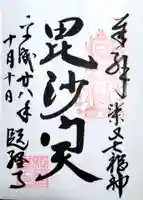 奉拝 柴又七福神
毘沙門天
平成廿八年
十月十日 題経寺